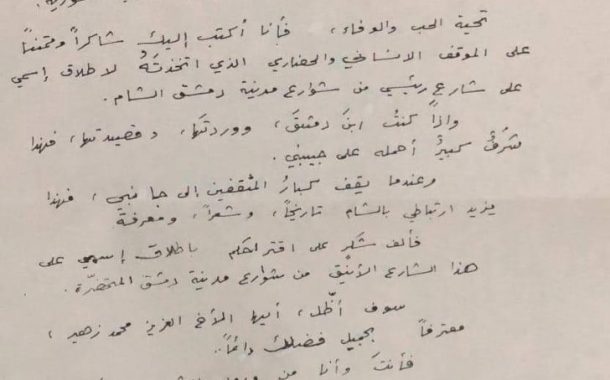 تحية الحب والوفاء، فأنا أكتب إليك شاكراً وممتناً
على الموقف الانساني والحضاري الذي اتخذتَهُ لاطلاق إسمي
على شارع رئيسي من شوارع مدينة دمشق الشام.
وإذا كنتُ ابنَ دمشقَ، ووردتَها، وقصيدتها، فهذا
شرفٌ كبيرٌ أحمله على جبيني.
وعندما يقف كبارُ المثقفين إلى جانبي، فهذا
يزيد ارتباطي بالشام تاريخاً، وشعراً، ومعرفة
فألف شكر على اقتراحكم باطلاق إسمي على
هذا الشارع الأنيق من شوارع مدينة دمشق المتحضّرة.
سوف أظّل، أيها الأخ العزيز محمد زهير،
معترفاً بجميل فضلك دائماً..
فأنتَ وأنا من